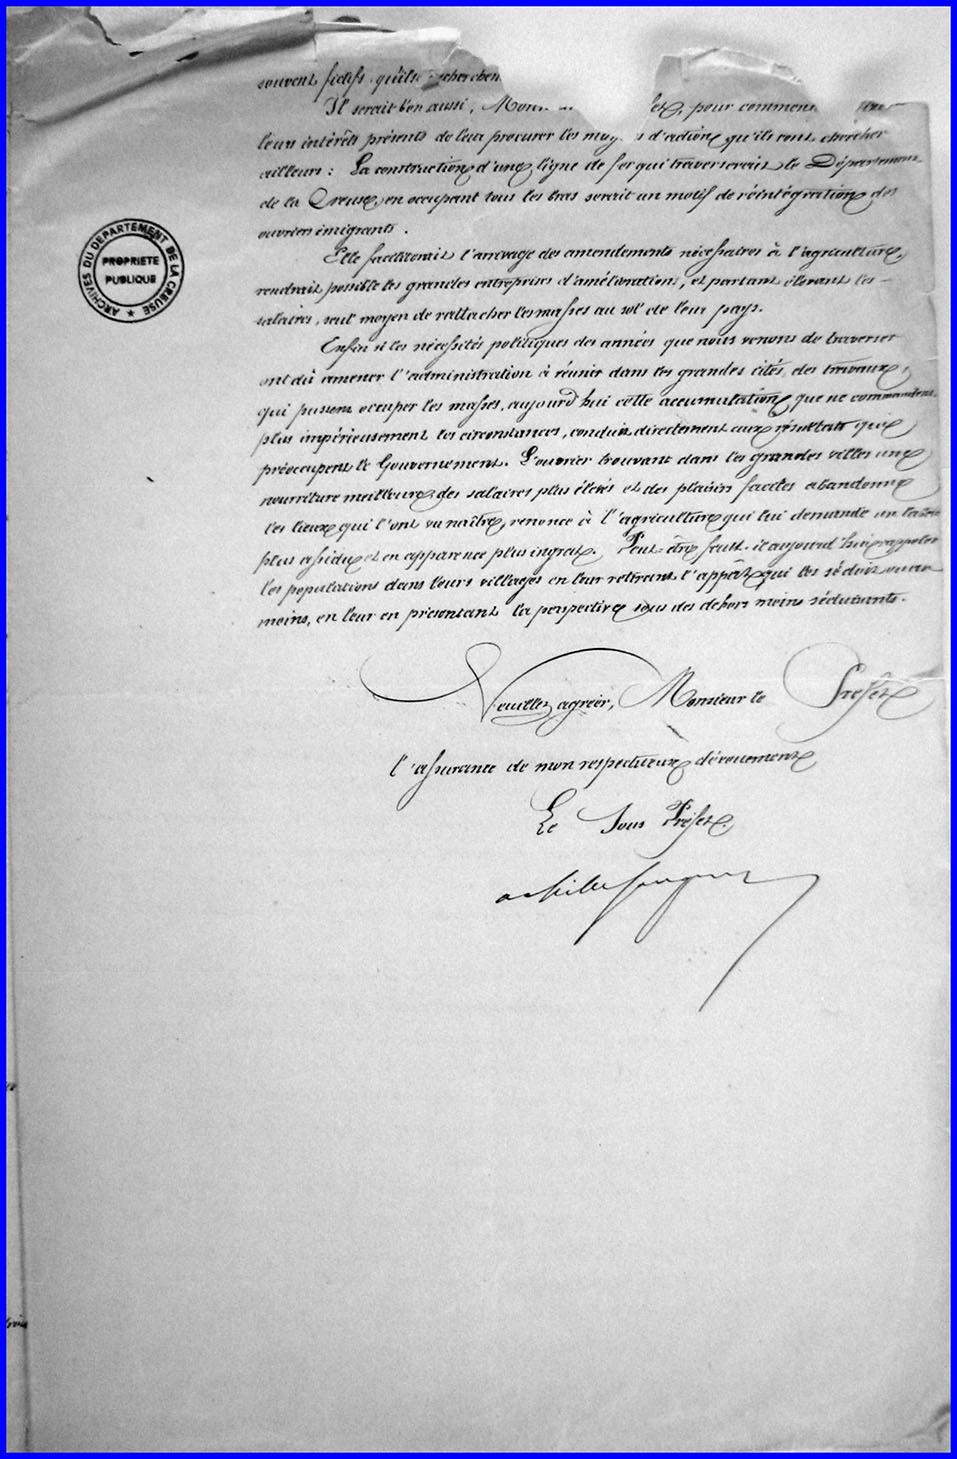 souvent fictifs qu'ils cherchen
Il serait bon aussi, Mon et, pour commen
leurs intérêts présents de leur procurer les moy s d'action qu'ils vont chercher
ailleurs : La construction d'une ligne de fer qui traverserait le Département
de la Creuse, en occupant tous les bras serait un motif de réintégration des
ouvriers émigrants.
Elle faciliterait l'arrivage des amendements nécessaires à l'agriculture,
rendrait possible les grandes entreprises d'amélioration, et partant élevant les
salaires, seul moyen de rattacher les masses au sol de leur pays.
Enfin si les nécessités politiques des années que nous venons de traverser
ont dû amener l'administration à réunir dans les grandes cités, des travaux,
qui pussent occuper les masses, aujourd'hui cette accumulation que ne commandent
plus impérieusement les circonstances, conduit directement aux résultats qui
préoccupent le Gouvernement. L'ouvrier trouvant dans les grandes villes une
nourriture meilleure, des salaires plus élevés et des plaisirs faciles abandonne
les lieux qui l'ont vu naître, renonce à l'agriculture qui lui demande un labeur
plus assidu et en apparence plus ingrat. Peut être faut-il aujourd'hui rappeler
les populations dans leurs villages en leur retirant l'appât qui les séduit ou au
moins, en leur en présentant la perspective sous des dehors moins séduisants.
Veuillez agréer, Monsieur le Préfet
l'assurance de mon respectueux dévouement
Le Sous Préfet.
ARCHIVES DU DEPARTEMENT DE LA CREUSE
PROPRIETE
PUBLIQUE